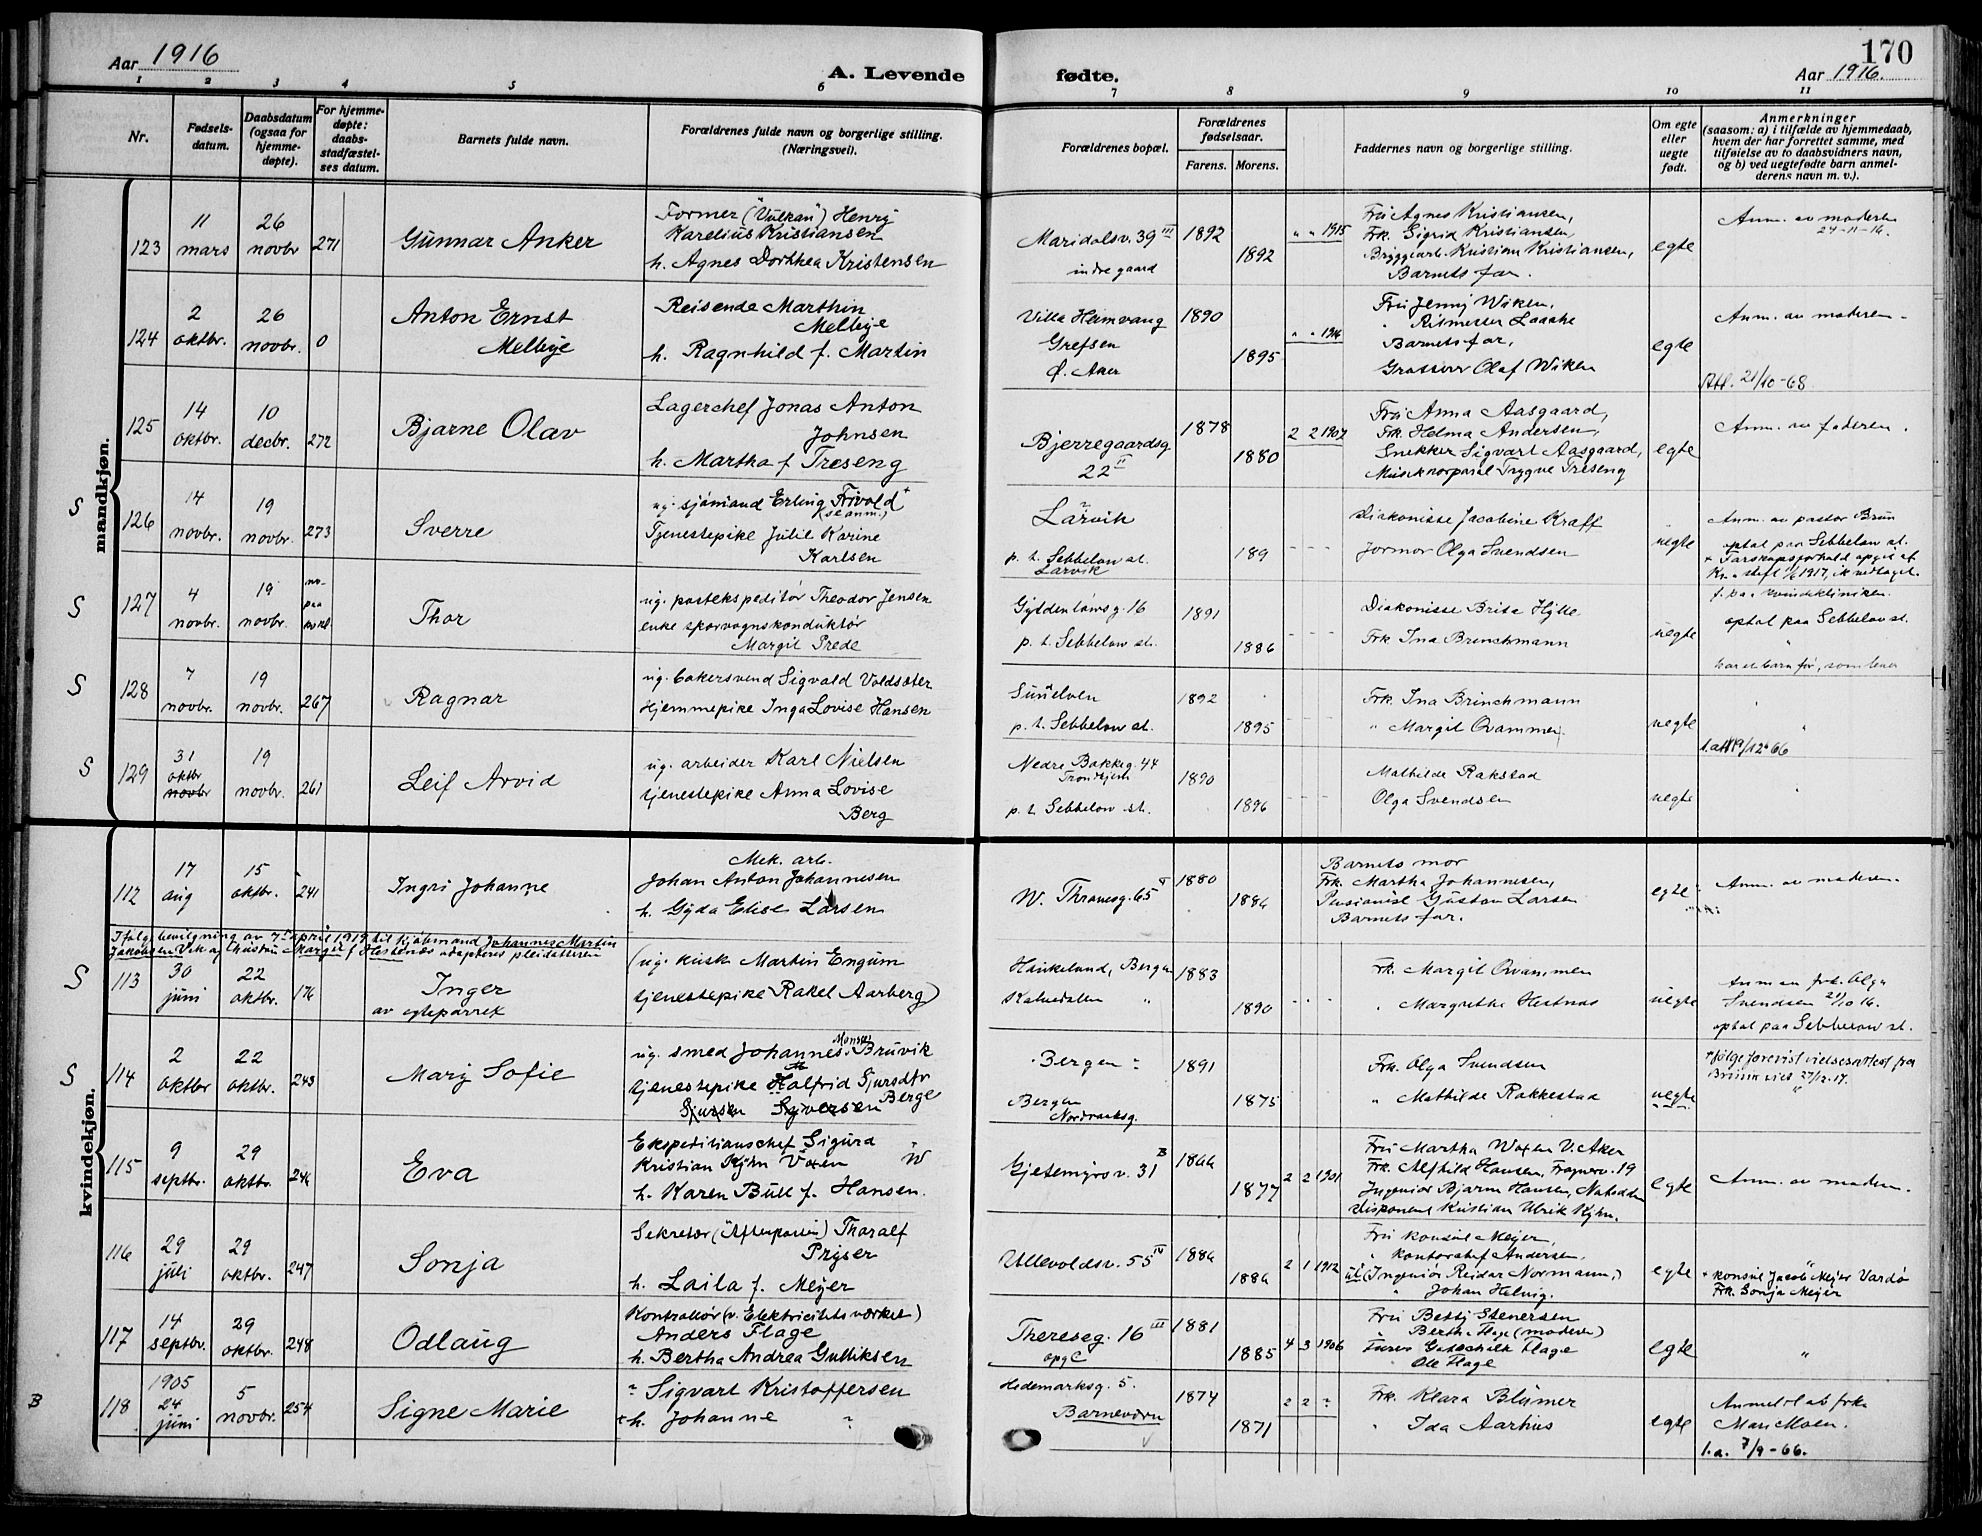 Aar 1916
A. Levende
fødte.
170
Aar 1916.
1 2 3 4 5 6 7 8 9 10 11
Nr.
Fødsels-
datum.
Daabsdatum
(ogsaa for
hjemme-
døpte).
For hjemme-
døpte:
daabs-
stadfæstel-
ses datum.
Barnets fulde navn.
Forældrenes fulde navn og borgerlige stilling.
(Næringsvei).
Forældrenes bopæl.
Forældrenes
fødselsaar.
Farens. Morens.
Faddernes navn og borgerlige stilling.
Om egte
eller
uegte
født.
Anmerkninger
(saasom: a) i tilfælde av hjemmedaab,
hvem der har forrettet samme, med
tilføielse av to daabsvidners navn,
og b) ved uegtefødte barn anmel-
derens navn m. v.).
mandkjøn.
123
11
mars
26
novbr
271
Gunnar Anker
Former ("Vulkan") Henry
Karelius Kristiansen
h. Agnes Dorthea Kristensen
Maridalsv. 39 III
indre gaard
1892
1892
" " 1915
Fru Agnes Kristiansen,
Frk. Sigrid Kristiansen
Bryggearb. Kristian Kristiansen,
Barnets far.
egte
Anm. av moderen
24-11-16.
124
2
oktbr.
26
novbr.
0
Anton Ernst
Melbye
Reisende Marthin
Melbye
h. Ragnhild f. Martin
Villa Hemvang
Grefsen
Ø. Aker
1890
1895
" " 1914
Fru Jenny Wiken,
" Ritmester Laache
Barnets far,
Grosserer Olaf Wiken
egte
Anm. av moderen
Att. 21/10-68
125
14
oktbr.
10
decbr.
272
Bjarne Olav
Lagerchef Jonas Anton
Johnsen
h. Martha f Treseng
Bjerregaardsg
22 II
1878
1880
2 2 1907
Fru Anna Aasgaard,
Frk. Helma Andersen,
Snekker Sigvart Aasgaard,
Musikkorporal Trygve Treseng
egte
Anm. av faderen.
S
126
14
novbr.
19
novbr.
273
Sverre
ug. sjømand Erling Frivold +
(se anm.)
Tjenestepike Julie Karine
Karlsen
Larvik
p. t. Sebbelow st.
Larvik
189
Diakonisse Jacobine Kraft
Jormor Olga Svendsen
uegte
Anm. av pastor Brun
optat paa Sebbelow st.
f. paa kvindekliniken.
S
127
4
novbr.
19
novbr.
Thor
ug. postekspeditør Theodor Jensen
enke sporvognskonduktør
Margit Prede
Gyldenløvesg. 16
p. t. Sebbelow st.
1891
1886
Diakonisse Brita Hylle
Frk Ina Brinchmann
uegte
optat paa Sebbelow st.
"
S
128
7
novbr.
19
novbr.
267
Ragnar
ug. bakersvend Sigvald Voldsæter
Hjemmepike Inga Lovise Hansen
Sunelven
p. t. Sebbelow st.
1892
1895
Frk. Ina Brinchmann
" Margit Qvammen
uegte
"
S
129
31
oktbr
novbr
19
novbr.
261
Leif Arvid
ug. arbeider Karl Nielsen
tjenestepike Anna Lovise
Berg
Nedre Bakkeg. 44
Trondhjem
p. t. Sebbelow st.
1890
1896
Mathilde Rakstad
Olga Svendsen
uegte
l.att 9/12-66
"
kvindekjøn.
112
17
aug
15
oktbr.
241
Ingri Johanne
Mek. arb.
Johan Anton Johannesen
h. Gyda Elise Larsen
W. Thranesg. 65 V
1880
1886
Barnets mor
Frk. Martha Johannesen,
Pensionist Gustav Larsen
Barnets far.
egte
Anm. av moderen.
Ifølge bevilgning av 7de april 1919 til kjøbmand Johannes Martin
Jakobsen Vik og hustru Margit f Hestenes adopteres pleiedatteren
S
113
30
juni
22
oktbr.
176
Inger
av egteparret
(ug. kusk Martin Engum
tjenestepike Rakel Aarberg)
Haukeland, Bergen
Kalvedalen "
1883
1890
Frk. Margit Qvammen
" Margrethe Hestnes
uegte
Anm av frk. Olga
Svendsen 21/10 16.
optat paa Sebbelow st.
S
114
2
oktbr
22
oktbr.
243
Mary Sofie
ug. smed Johannes Monsen Bruvik
tjenestepike Halfrid Sjursdtr
Sjursen Syversen Berge
Bergen
Bergen
Nordraaksg.
1891
1875
Frk. Olga Svendsen
" Mathilde Rakkestad
uegte
ifølge forevist vielsesattest fra
Bruvik viet 27/12.17.
"
115
9
septbr.
29
oktbr.
246
Eva
Ekspeditionschef Sigurd
Kristian Kyhn Voxen W
h. Karen Bull f. Hansen.
Gjetemyrsv. 31 B
1866
1877
2 2 1901
Fru Martha Woxen V. Aker
Frk. Alfhild Hansen, Frognerv. 19
Ingeniør Bjarne Hansen, Notodden
Disponent Kristian Ulrik Kyhn.
egte
Anm. av moderen.
116
29
juli
29
oktbr.
247
Sonja
Sekretær (Aftenposten) Tharalf
Pryser
h. Laila f. Meyer
Ullevoldsv. 55 IV
1886
1886
2 1 1912
Fru konsul Meyer,
" kontorchef Andersen.
(Ingeniør Reidar Normann,)
" Johan Helvig.
egte
"
+ konsul Jacob Meyer Vardø
Frk. Sonja Meyer
117
14
septbr.
29
oktbr.
248
Odlaug
Kontrollør (v. Elektricitetsværket)
Anders Flage
h. Bertha Andrea Gulliksen
Thereseg. 16 III
opg C
1881
1885
4 3 1906
Fru Betsy Stenersen
" Berthe Flage (moderen)
Ole Flage
egte
"
B
118
1905
24
juni
5
novbr.
254
Signe Marie
" Sigvart Kristoffersen
h. Johanne "
Hedemarksg. 5.
Barnevern
1874
1871
2 2 "
Frk. Klara Blümer
" Ida Aarhus
egte
Anmeldt ab frk.
Mari Moen.
l.a. 7/9-66.